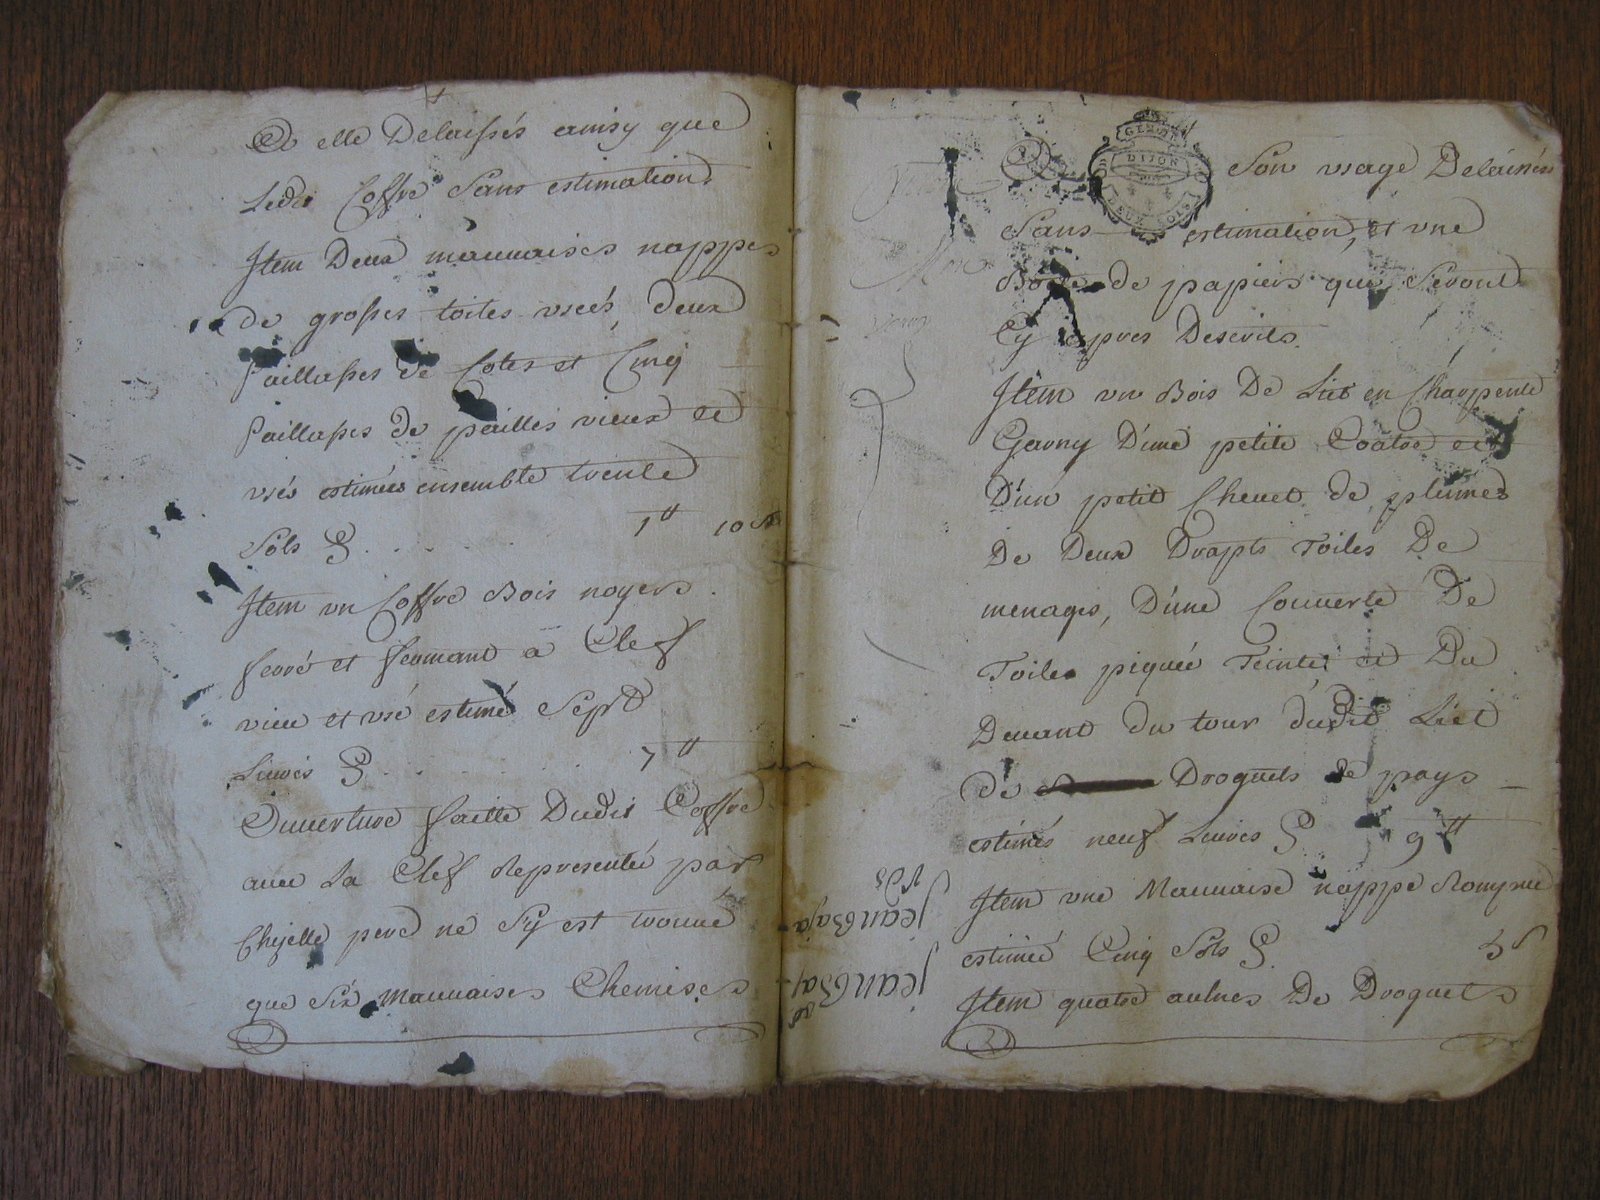 A elle Delaissés ainsy que
Ledit Coffre Sans estimation
Item Deux mauvaises nappes
de grosses toiles usées, deux
paillasses de Cotes et Cinq
paillasses de pailles vieux et
usés estimées ensemble trente
Sols § . . . . 1tt 10 s
Item un Coffre Bois noyere
ferré et fermant a Clef
vieu et usé estimé Sept
Livres § . . . . . 7tt
Ouverture faitte Dudit Coffre
avec La Clef Representée par
Chijelle pere ne S'y est trouvé
que Six mauvaises Chemises
A Son usage Delaissées
GEN. DE
DIJON
DEUX SOLS
Sans estimation, et une
Boete de papiers qui Seront
Cy apres Descrits
Item un Bois De Lict en Charpente
Garny D'une petite Coatre et
D'un petit Chevet de plumes
De Deux Drapts Toiles De
menages, D'une Couverte De
Toiles piquée Teinte, et Du
Devant du tour dudit Lict
de Droguets de pays
estimés neuf Livres § 9tt
Item une Mauvaise nappe Rompuee
estimée Cinq Sols § 5 s
Item quatre aulnes De Droguets
Jean Bap
Jean Bap